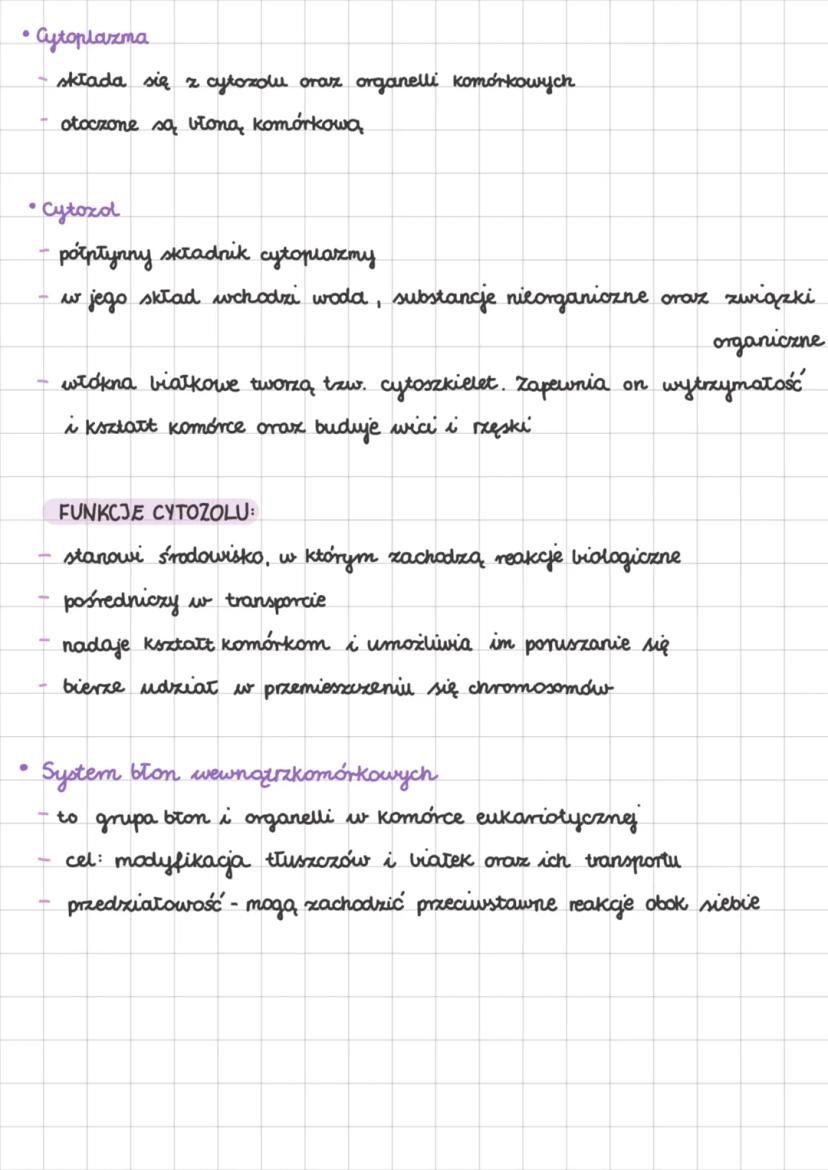 • Cytoplazma
- składa się z cytozolu oraz organelli komórkowych
- otoczone są błoną komórkową
• Cytozol
- półpłynny składnik cytoplazmy
- w jego skład wchodzi woda, substancje nieorganiczne oraz związki
organiczne
- włókna białkowe tworzą tzw. cytoszkielet. Zapewnia on wytrzymałość
i kształt komórce oraz buduje wici i rzęski
FUNKCJE CYTOZOLU:
- stanowi środowisko, w którym zachodzą reakcje biologiczne
- pośredniczy w transporcie
- nadaje kształt komórkom i umożliwia im poruszanie się
- bierze udział w przemieszczeniu się chromosomów
• System błon wewnątrzkomórkowych
- to grupa błon i organelli w komórce eukariotycznej
- cel: modyfikacja tłuszczów i białek oraz ich transportu
- przedziałowość - mogą zachodzić przeciwstawne reakcje obok siebie